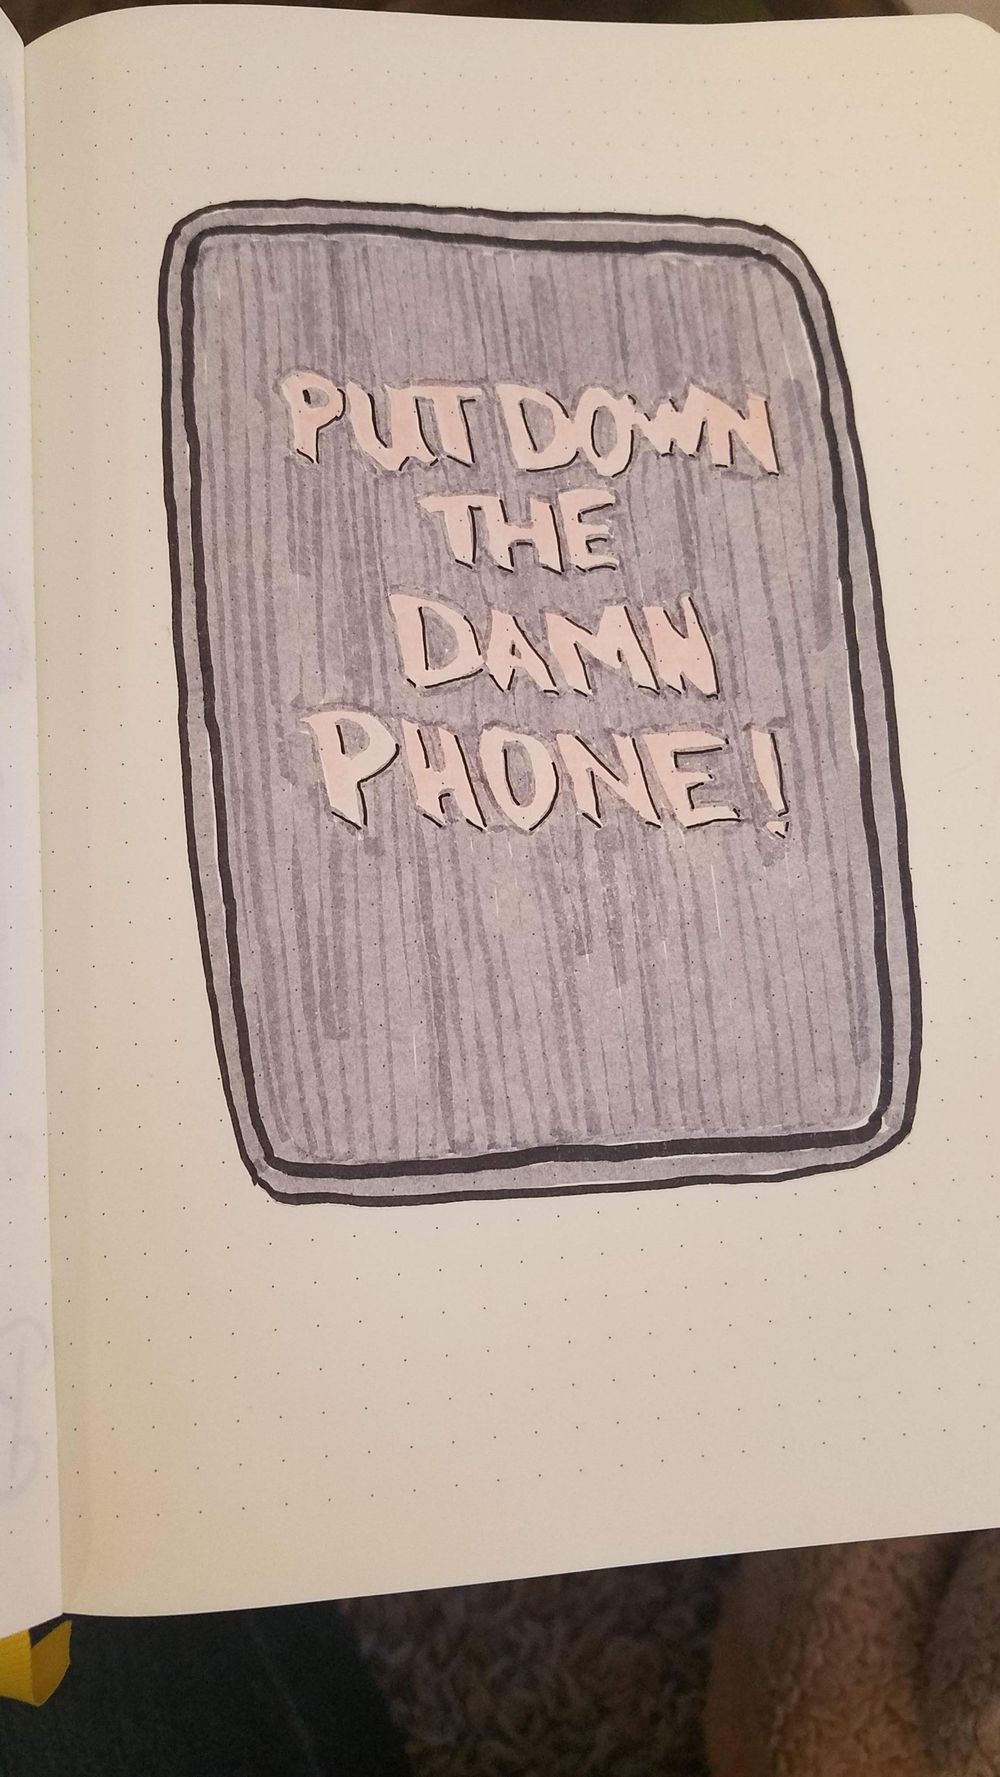 PUT DOWN
THE
DAMN
PHONE!